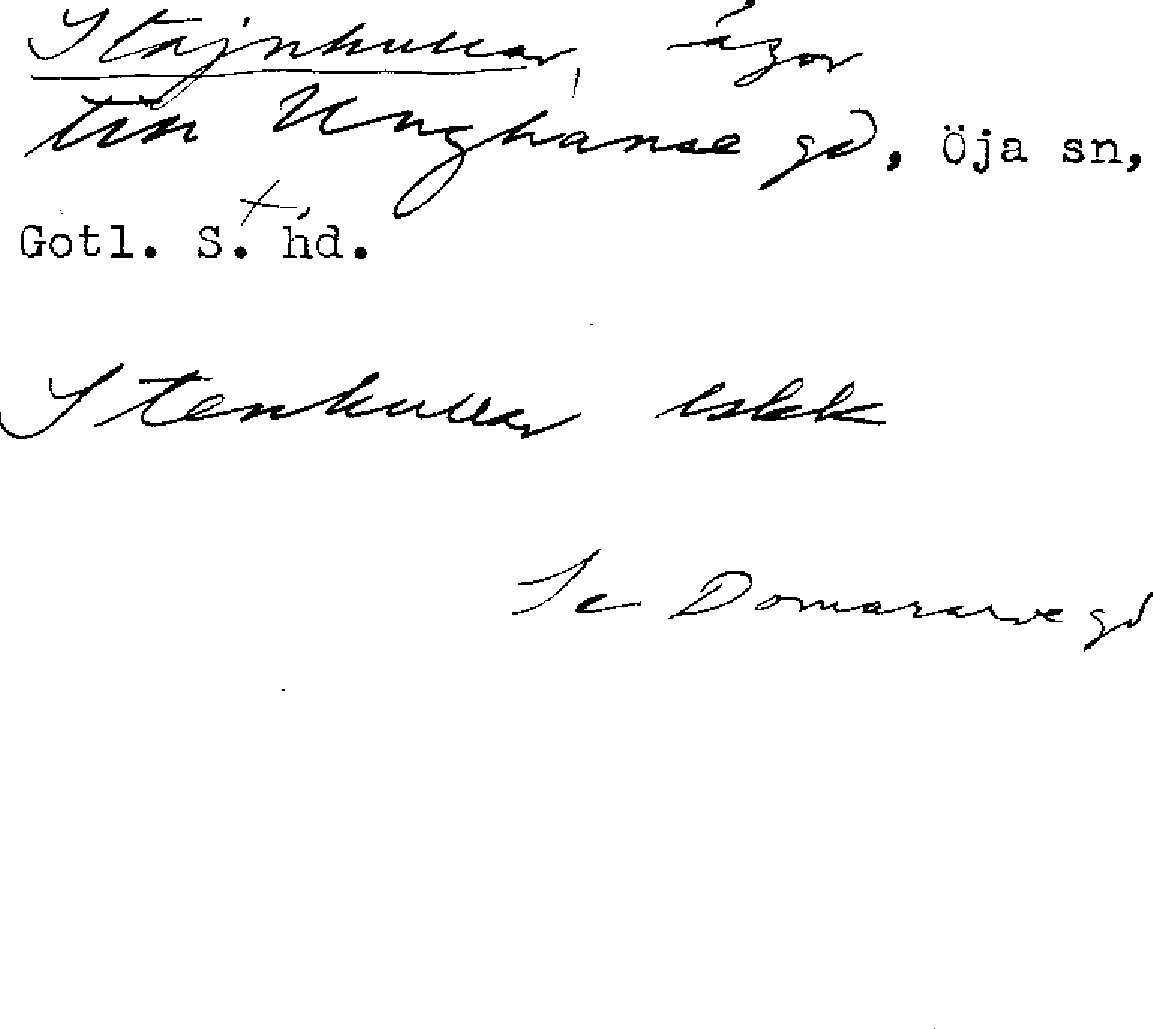 Stajnkullar, ägor
till Unghanse gd, Öja sn,
Gotl. S. hd.
Stenkullar lskk
Se Domararve gd